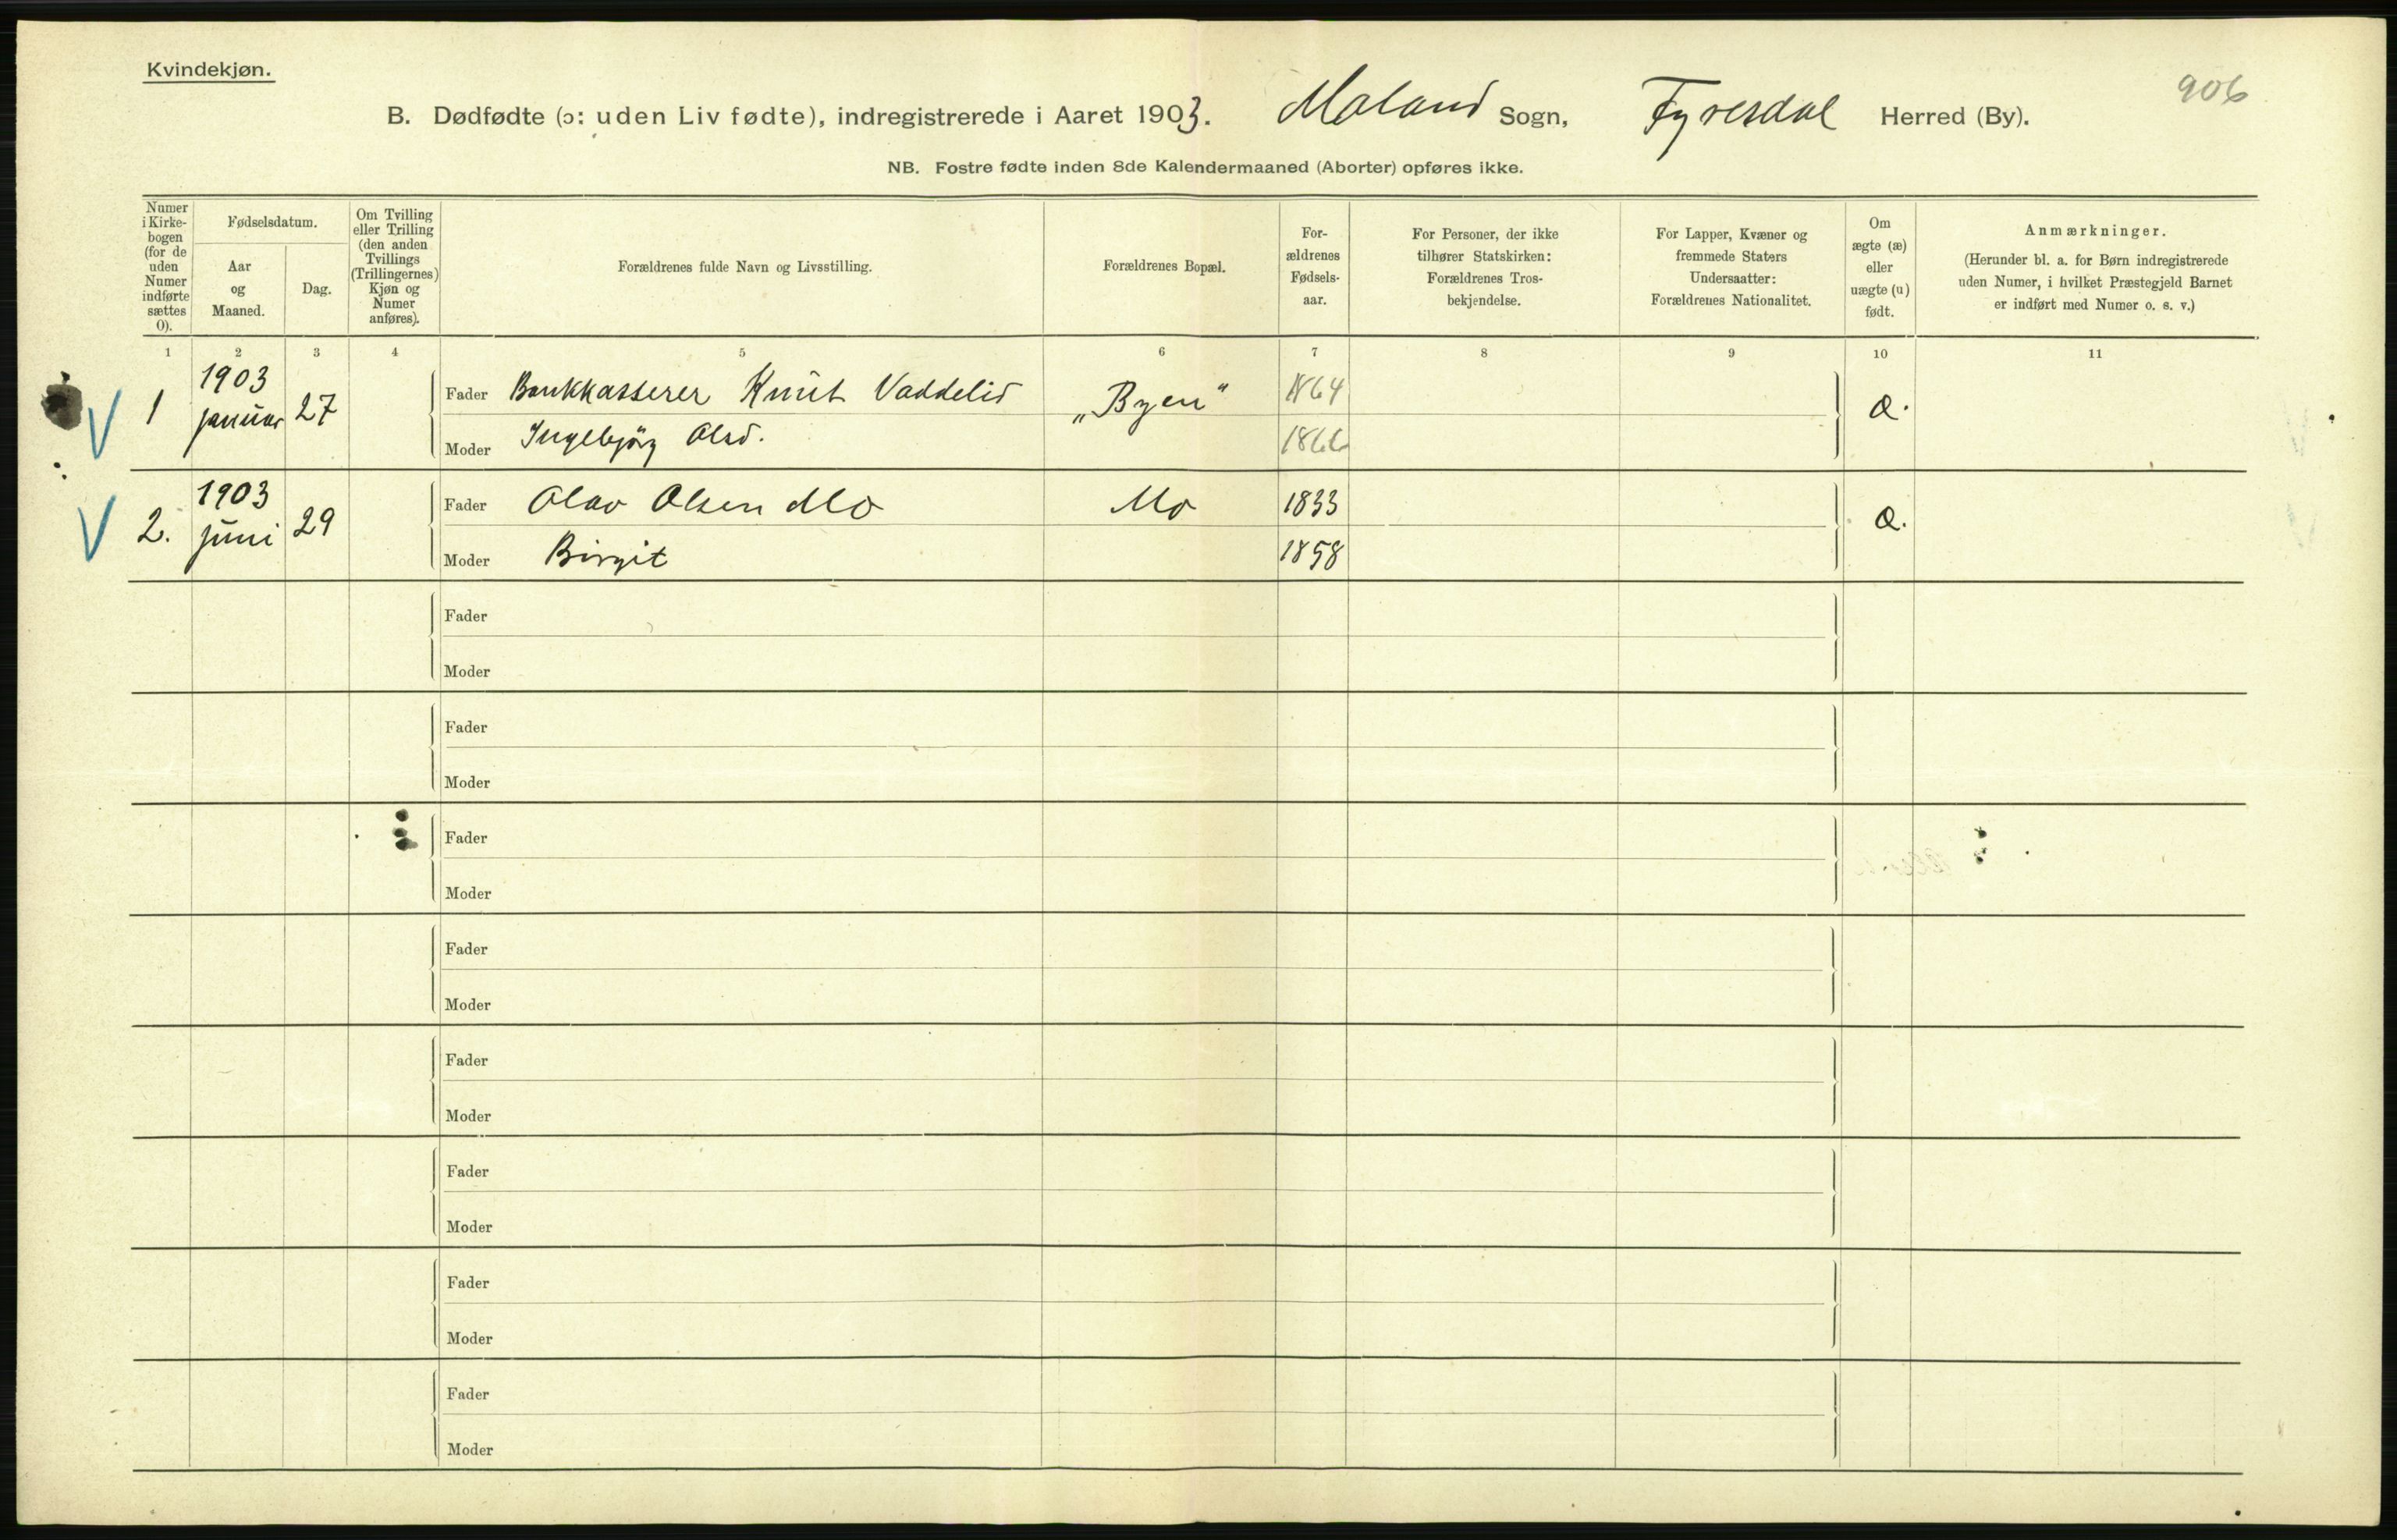 Kvindekjøn.
906
B. Dødfødte (ɔ: uden Liv fødte), indregistrerede i Aaret 1903. Moland Sogn, Fyresdal Herred (By).
NB. Fostre fødte inden 8de Kalendermaaned (Aborter) opføres ikke.
Numer i Kirke-bogen (for de uden Numer indførte sættes 0).
Fødselsdatum.
Aar og Maaned.
Dag.
Om Tvilling eller Trilling (den anden Tvillings (Trillingernes) Kjøn og Numer anføres).
Forældrenes fulde Navn og Livsstilling.
Forældrenes Bopæl.
For-ældrenes Fødsels-aar.
For Personer, der ikke tilhører Statskirken: Forældrenes Tros-bekjendelse.
For Lapper, Kvæner og fremmede Staters Undersaatter: Forældrenes Nationalitet.
Om ægte (æ) eller uægte (u) født.
Anmærkninger.
(Herunder bl. a. for Børn indregistrerede uden Numer, i hvilket Præstegjeld Barnet er indført med Numer o. s. v.)
1 2 3 4 5 6 7 8 9 10 11
V 1 1903 januar 27 Fader Bankkasserer Knut Vaddelid „Byen“ 1864 æ.
Moder Ingebjörg Olsd. 1866
V 2. 1903 juni 29 Fader Olav Olsen Mo Mo 1833 æ.
Moder Birgit 1858
Fader
Moder
Fader
Moder
Fader
Moder
Fader
Moder
Fader
Moder
Fader
Moder
Fader
Moder
Fader
Moder